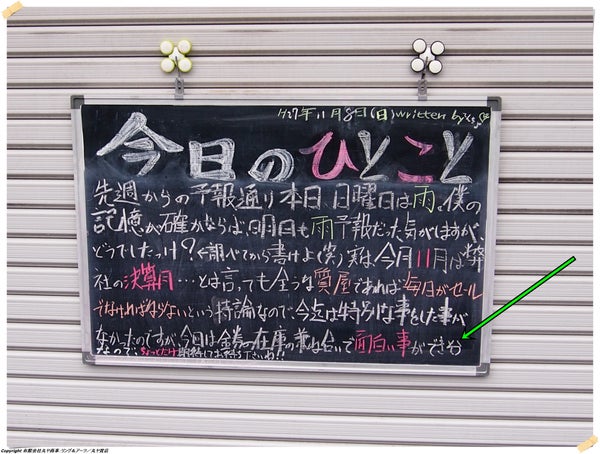 H27年11月8日(日)written by
今日のひとこと
先週からの予報通り本日、日曜日は雨。僕の
記憶が確かならば、明日も雨予報だった気がしますが、
どうでしたっけ？←調べてから書けよ(笑)実は今月11月は弊
社の決算月…とは言っても全うな質屋であれば毎日がセール
でなければならないという持論なので、今迄は特別な事をした事が
なかったのですが、今日は金券の在庫の兼ね合いで面白い事ができそう
なので、ちょっとだけ期待してお待ち下さいね!!
Copyright 有限会社丸や商事・リング&アーツ／丸や質店